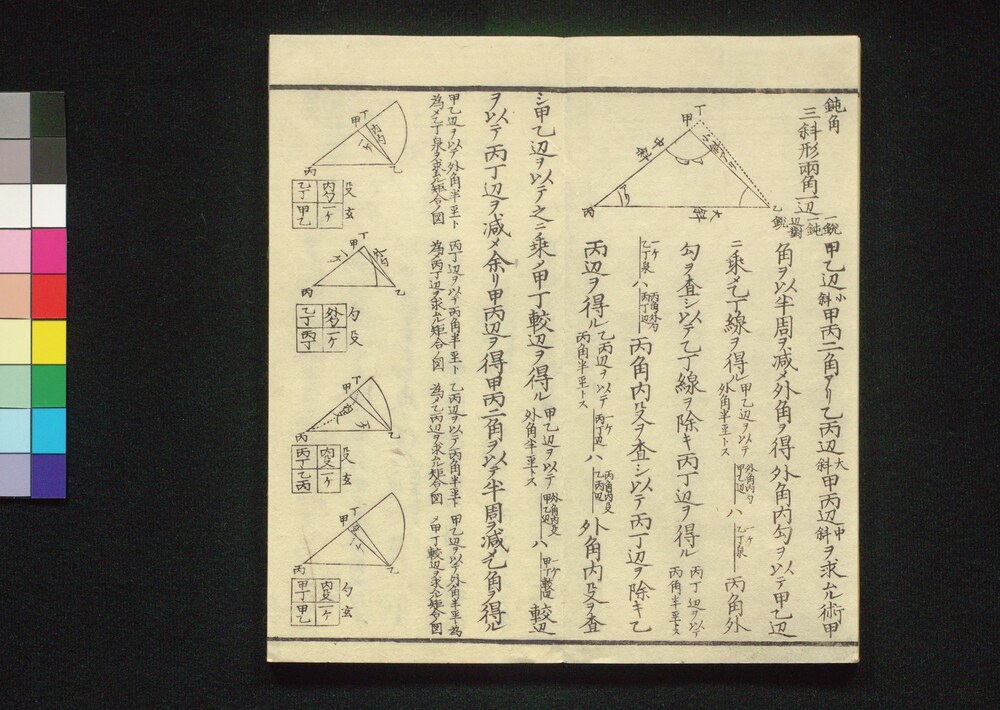 鈍角
三斜形両角一辺
一鋭
一鈍
鋭
辺対
丁
甲
丙
乙
大斜
中斜
甲乙辺小斜甲丙二角アリ乙丙辺大斜甲丙辺中斜ヲ求ムル術甲
角ヲ以半周ヲ減メ外角ヲ得外角内勾ヲ以テ甲乙辺
ニ乗メ乙丁線ヲ得ル甲乙辺ヲ以テ外角半至トス外角内勾甲乙辺ハ一ケ乙丁泉丙角外
勾ヲ査シ以テ乙丁線ヲ除キ丙丁辺ヲ得ル丙丁辺ヲ以テ丙角半至トス
一ケ乙丁泉ハ丙角外勾丙丁辺丙角内殳ヲ査シ以テ丙丁辺ヲ除キ乙
丙辺ヲ得ル乙丙辺ヲ以テ丙角半至トス一ケ丙丁辺ハ丙角内殳乙丙辺外角内殳ヲ査
シ甲乙辺ヲ以テ之ニ乗メ甲丁較辺ヲ得ル甲乙辺ヲ以テ外角半至トス外角内殳甲乙辺ハ一ケ甲丁較辺較辺
ヲ以テ丙丁辺ヲ減メ余リ甲丙辺ヲ得甲丙二角ヲ以テ半周ヲ減メ乙角ヲ得ル
甲乙辺ヲ以テ外角半至ト
為メ乙丁泉ヲ求ムル矩合ノ図
丙丁辺ヲ以テ丙角半至ト
為メ丙丁辺ヲ求ムル矩合ノ図
乙丙辺ヲ以テ丙角半至ト
為メ乙丙辺ヲ求ムル矩合ノ図
甲乙辺ヲ以テ外角半至ト為
メ甲丁較辺ヲ求ムル矩合ノ図
丁
甲
丙
乙
内勾
一ケ
乙丁
甲乙
殳
玄
丁
甲
丙
乙
外勾
一ケ
乙丁
丙丁
勾
殳
丁
甲
丙
乙
内殳
一ケ
丙丁
乙丙
殳
玄
丁
甲
丙
乙
内殳
一ケ
甲丁
甲乙
勾
玄